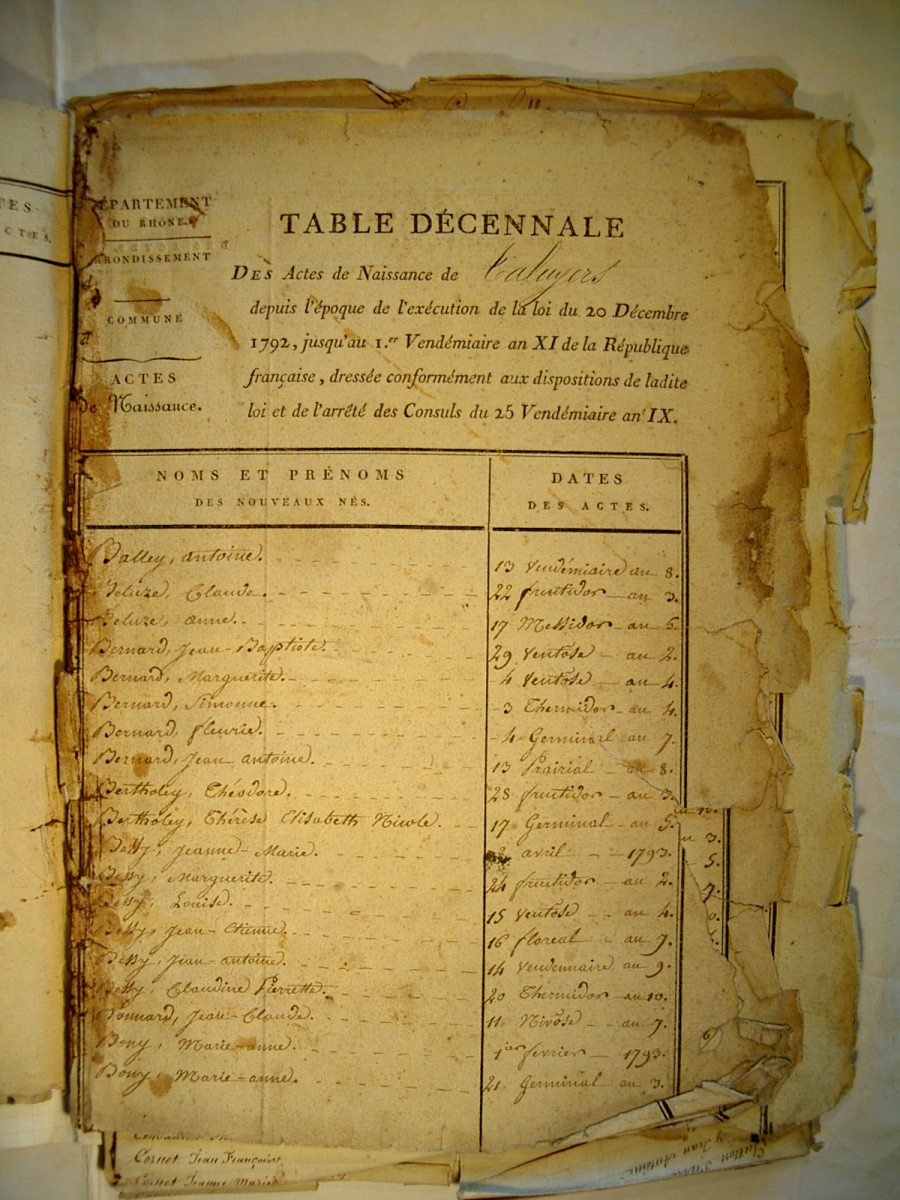 DÉPARTEMENT
DU RHÔNE.
ARRONDISSEMENT
COMMUNE
ACTES
de Naissance.
TABLE DÉCENNALE
DES Actes de Naissance de Taluyers
depuis l'époque de l'exécution de la loi du 20 Décembre
1792, jusqu'au 1.er Vendémiaire an XI de la République
française, dressée conformément aux dispositions de ladite
loi et de l'arrêté des Consuls du 25 Vendémiaire an IX.
NOMS ET PRÉNOMS
DES NOUVEAUX NÉS.
DATES
DES ACTES.
Balley, antoine. 13 Vendémiaire an 8.
Beluze, Claude. 22 fructidor an 3.
Beluze, anne. 17 Messidor an 5.
Bernard, Jean-Baptiste. 29 Ventôse an 2.
Bernard, Marguerite. 4 Ventôse an 4.
Bernard, Simonne. 3 Thermidor an 4.
Bernard, fleurie. 4 Germinal an 7.
Bernard, Jean antoine. 13 Prairial an 8.
Bertholey, Théodore. 28 fructidor an 3.
Bertholey, Thérèse Elisabeth Nicole. 17 Germinal an 5.
Bessy, Jeanne-Marie. avril 1793.
Bessy, Marguerite. 24 fructidor an 2.
Bessy, Louise. 15 Ventôse an 4.
Bessy, Jean-Etienne. 16 floreal an 7.
Bessy, Jean-antoine. 14 Vendemiaire an 9.
Bessy, Claudine Pierrette. 20 Thermidor an 10.
Bonnard, Jean-Claude. 11 Nivôse an 7.
Bony, Marie-anne. 1er fevrier 1793.
Bony, Marie-anne. 21 Germinal an 3.
Cornet Jean Françoise
Cornet Jeanne Marie